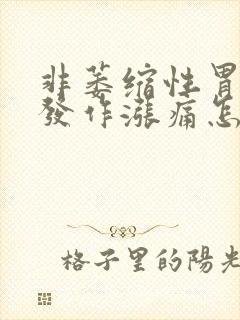 非萎缩性胃
發作漲痛怎
格子里的陽光